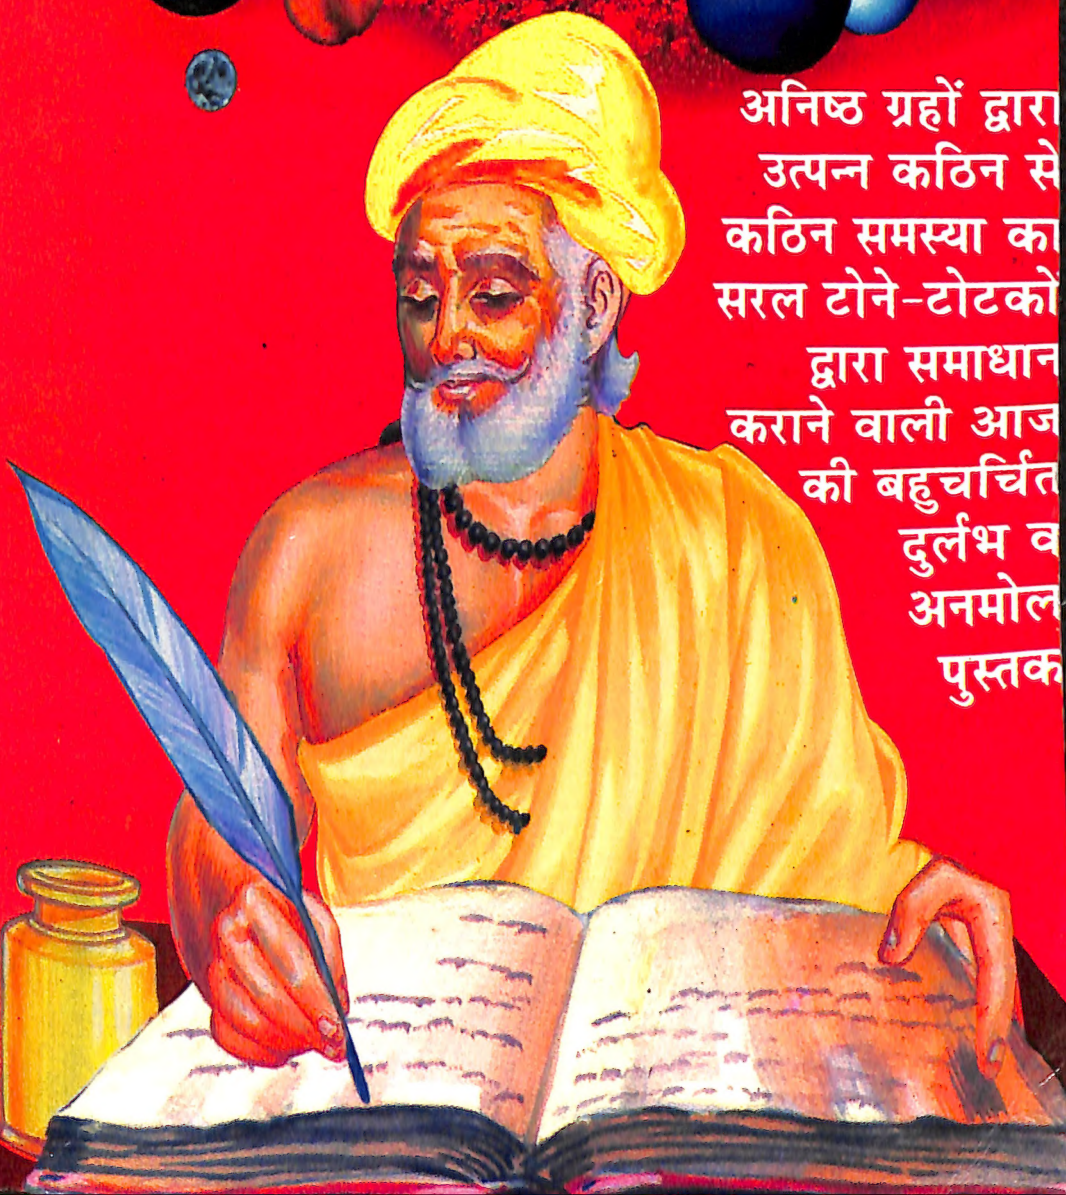 अनिष्ठ ग्रहों द्वारा
उत्पन्न कठिन से
कठिन समस्या का
सरल टोने-टोटकों
द्वारा समाधान
कराने वाली आज
की बहुचर्चित
दुर्लभ व
अनमोल
पुस्तक